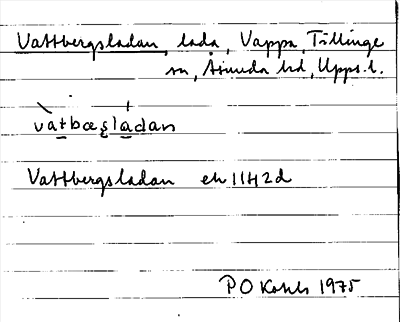 Vattbergsladan, lada, Vappa, Tillinge
sn, Åsunda hd, Upps. l.
vàtbœșla̍dan
Vattbergsladan ek 11H2d
P O 1975